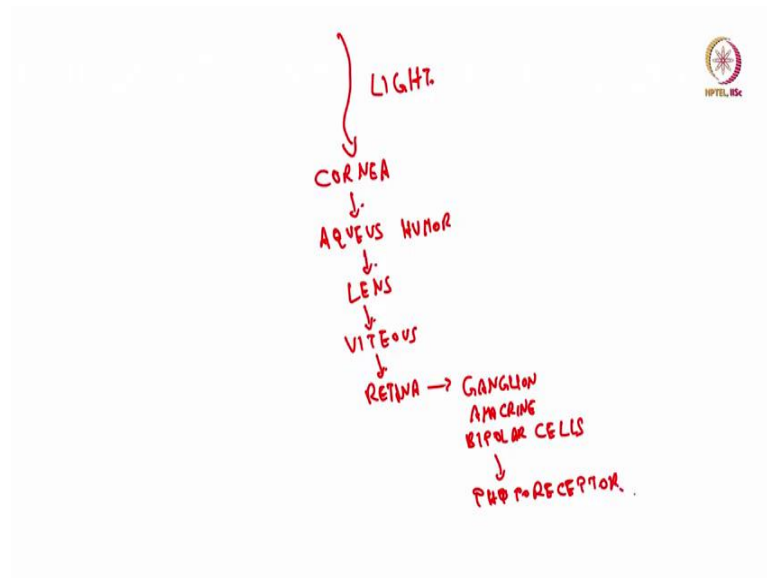 LIGHT.
NPTEL, IISc
CORNEA
AQUEUS HUMOR
LENS
VITEOUS
RETINA → GANGLION
AMACRINE
BIPOLAR CELLS
PHOTORECEPTOR.